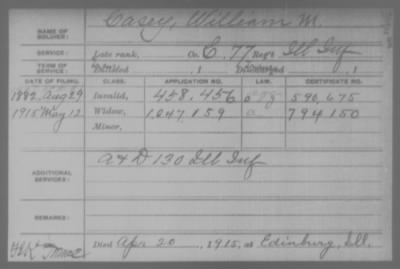 NAME OF SOLDIER: Casey, William M.
SERVICE: Late rank, Co. C, 77 Reg't Ill Inf
TERM OF SERVICE: Enlisted , 1 Discharged , 1
DATE OF FILING. CLASS. APPLICATION NO. LAW. CERTIFICATE NO.
1882, Aug 29 Invalid, 458,456 590,675
1915 May 12 Widow, 1,047,159 794150
Minor,
ADDITIONAL SERVICES: A & D 130 Ill Inf
REMARKS:
Died Apr 20, 1915, at Edinburg, Ill.